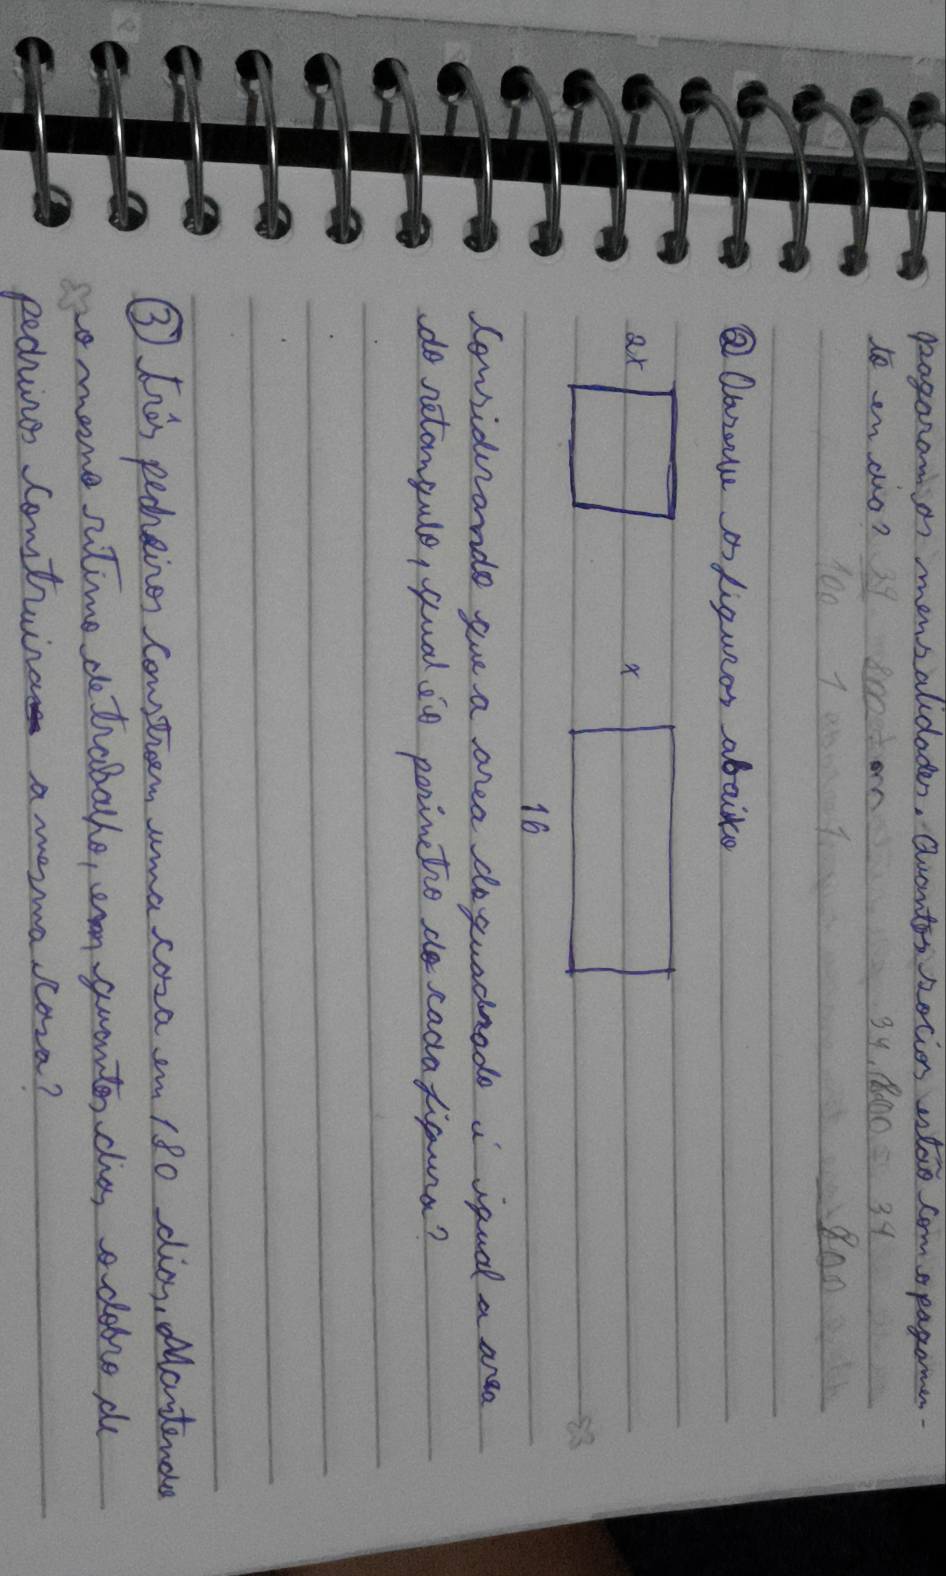 pagaram os mensalidades. Quantos socios estão com o pagamen-
to em dia? 34 34.800 = 34
100 1 800
② Observe os figuras abaixo
2x x
16
Considerando que a area do quadrado é igual a area
do retangulo, qual é o perimetro de cada figura?
③ Três pedreiros constroem uma casa em 180 dias. Mantendo
o mesmo ritimo de trabalho, em quantos dias o dobro de
pedreiros construira a mesma casa?